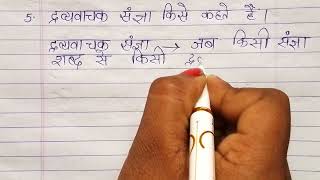 5. द्रव्यवाचक संज्ञा किसे कहते है ।
द्रव्यवाचक संज्ञा → जब किसी संज्ञा
शब्द से किसी